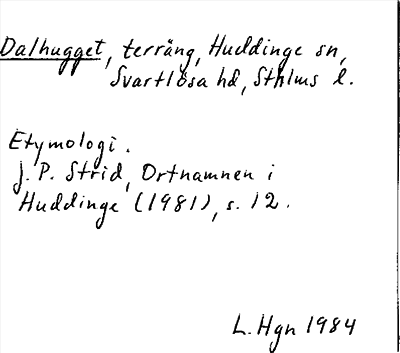 Dalhugget, terräng, Huddinge sn,
Svartlösa hd, Sthlms l.
Etymologi.
J. P. Strid, Ortnamnen i
Huddinge (1981), s. 12.
L. Hgn 1984